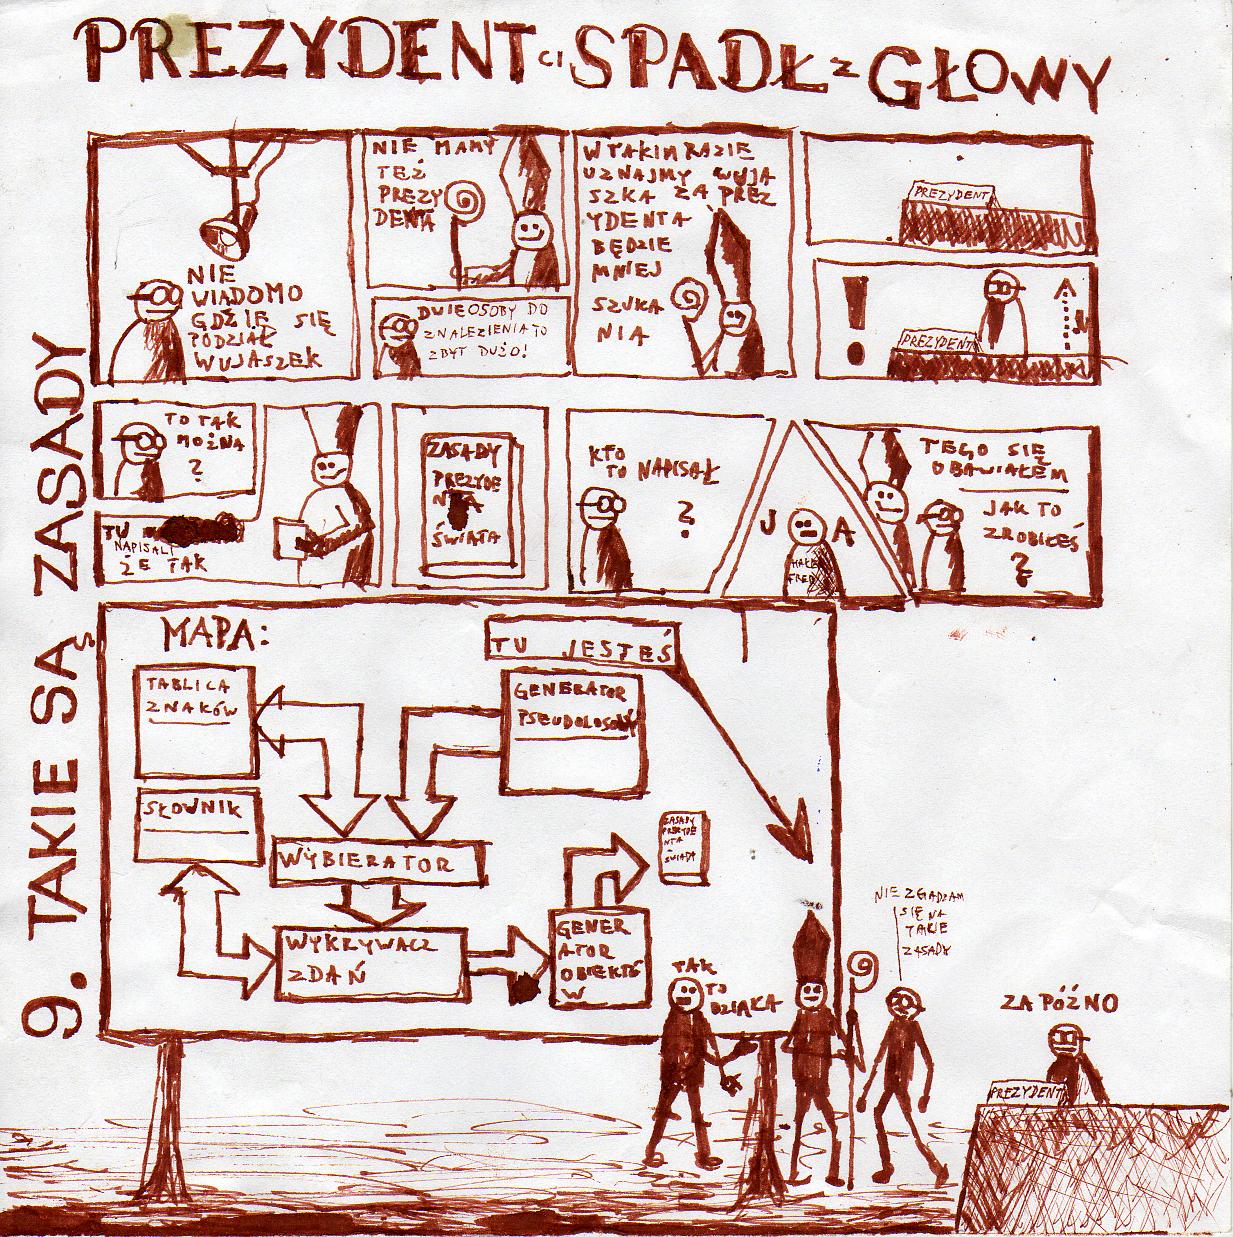 PREZYDENT CI SPADŁ Z GŁOWY
9. TAKIE SĄ ZASADY
NIE
WIADOMO
GDZIE SIĘ
PODZIAŁ
WUJASZEK
NIE MAMY
TEŻ
PREZY
DENTA
DWIE OSOBY DO
ZNALEZIENIA TO
ZBYT DUŻO!
W TAKIM RAZIE
UZNAJMY WUJA
SZKA ZA PREZ
YDENTA
BĘDZIE
MNIEJ
SZUKA
NIA
PREZYDENT
!
PREZYDENT
TO TAK
MOŻNA
?
TU
NAPISALI
ŻE TAK
ZASADY
PREZYDE
NTA
ŚWIATA
KTO
TO NAPISAŁ
?
JA
TEGO SIĘ
OBAWIAŁEM
JAK TO
ZROBIŁEŚ
?
MAPA:
TU JESTEŚ
TABLICA
ZNAKÓW
GENERATOR
PSEUDOLOSOWY
SŁOWNIK
WYBIERATOR
WYKRYWACZ
ZDAŃ
GENER
ATOR
OBIEKTÓ
W
ZASADY
PREZYDE
NTA
ŚWIATA
TAK
TO
DZIAŁA
NIE ZGADZAM
SIĘ NA
TAKIE
ZASADY
ZA PÓŹNO
PREZYDENT